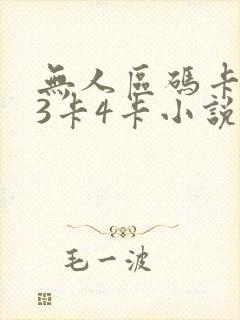 無人區碼卡
3卡4卡小說
毛一波